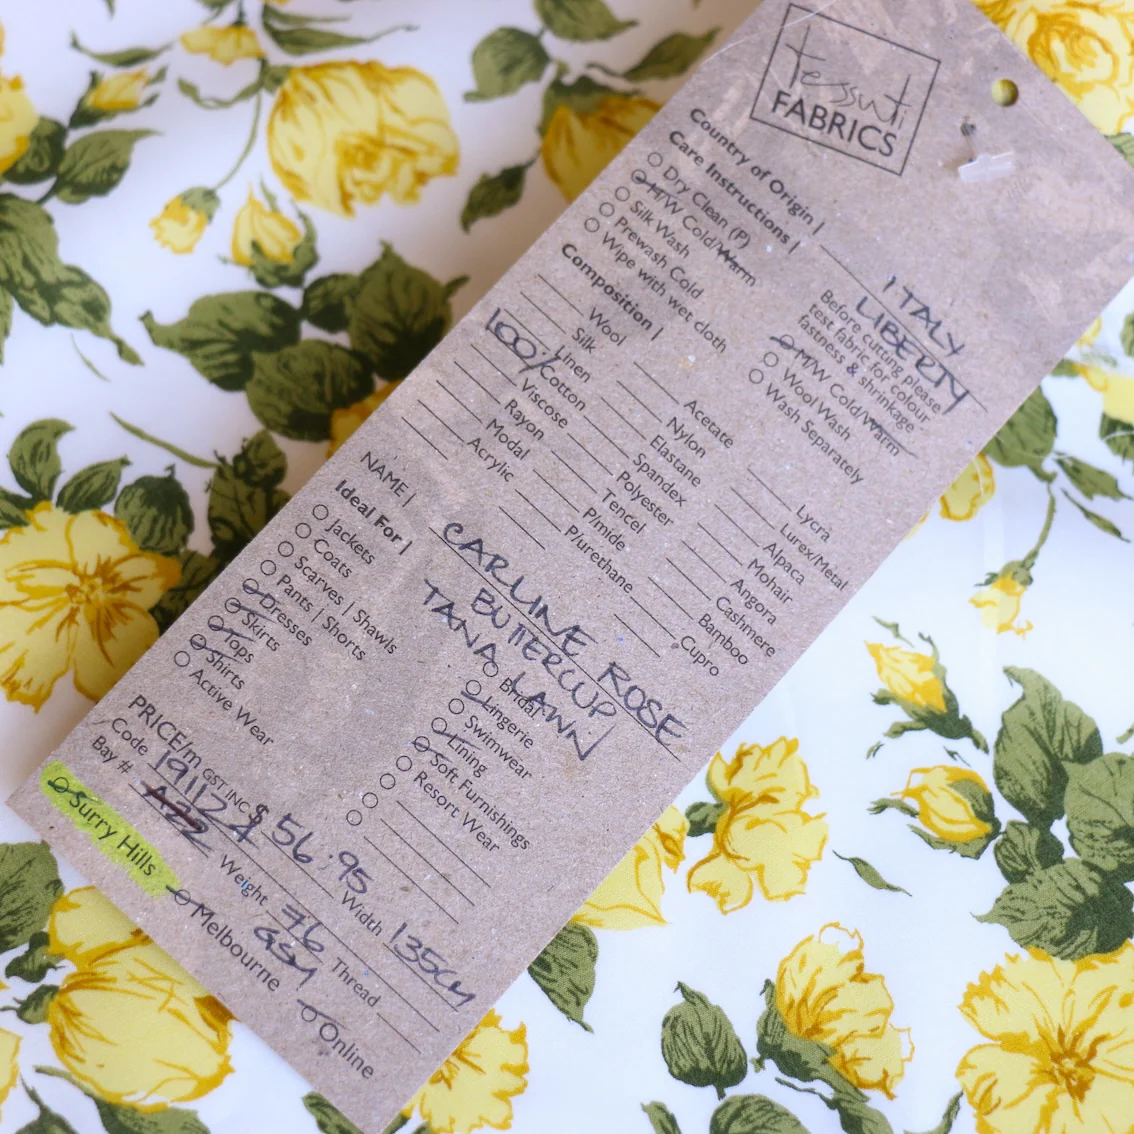 tessuti
FABRICS
Country of Origin | ITALY
LIBERTY
Care Instructions |
Dry Clean (P)
M/W Cold/Warm
Silk Wash
Prewash Cold
Wipe with wet cloth
Before cutting please
test fabric for colour
fastness & shrinkage
M/W Cold/Warm
Wool Wash
Wash Separately
Composition |
Wool
Silk
Linen
100% Cotton
Viscose
Rayon
Modal
Acrylic
Acetate
Nylon
Elastane
Spandex
Polyester
Tencel
P/mide
P/urethane
Lycra
Lurex/Metal
Alpaca
Mohair
Angora
Cashmere
Bamboo
Cupro
NAME | CARLINE ROSE
BUTTERCUP
TANA LAWN
Ideal For |
Jackets
Coats
Scarves | Shawls
Pants | Shorts
Dresses
Skirts
Tops
Shirts
Active Wear
Bridal
Lingerie
Swimwear
Lining
Soft Furnishings
Resort Wear
PRICE/m GST INC $56.95
Code 191127 Width 135CM
Bay # A22 Weight 76 GSM Thread
Surry Hills Melbourne Online